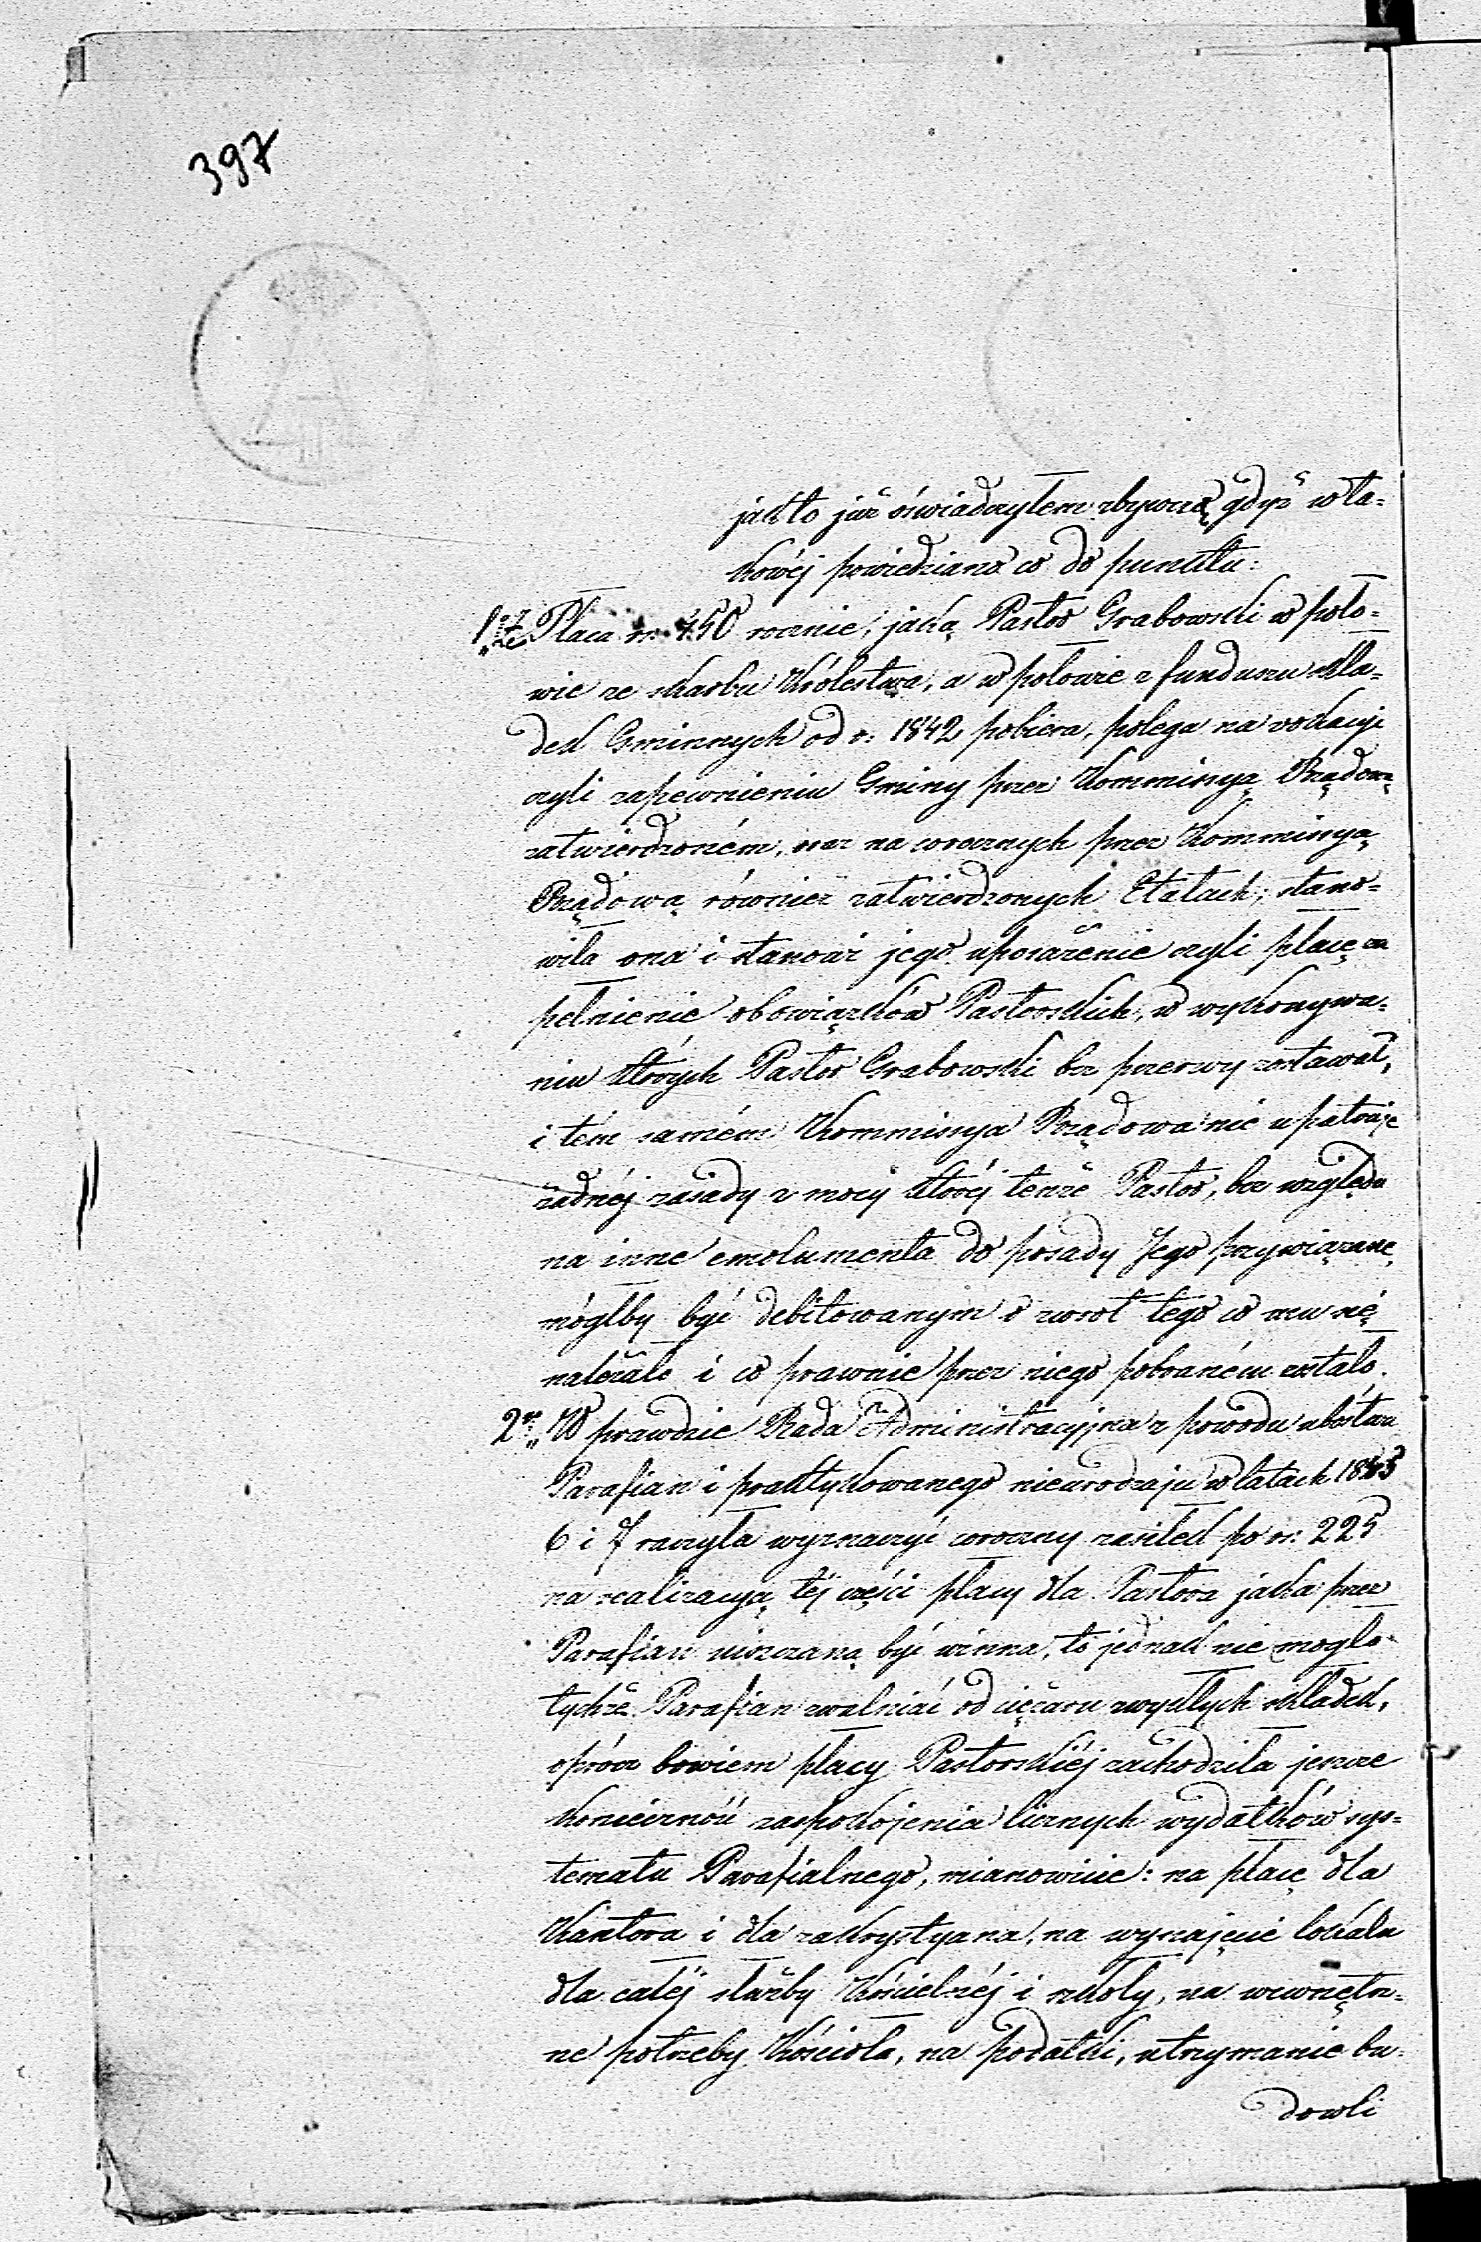 397
jak to już oświadczyłem zbywczą gdyż w ta-
kowéj powiedziano co do punktu:
1. że Płaca rs. 450 rocznie, jaką Pastor Grabowski w poło-
wie ze skarbu Królestwa, a w połowie z funduszu skła-
dek Gminnych od r: 1842 pobiera, polega na vokacyi
czyli zapewnieniu Gminy przez Kommissyą Rządową
zatwierdzoném, oraz na corocznych przez Kommissyą
Rządową również zatwierdzonych Etatach; stano-
wiła ona i stanowi jego uposażenie czyli płacę za
pełnienie obowiązków Pastorskich, w wykonywa-
niu których Pastor Grabowski bez przerwy zostawał,
i tém samém Kommissya Rządowa nie upatruje
żadnéj zasady z mocy któréj tenże Pastor, bez względu
na inne emolumenta do posady Jego przywiązane,
mógłby być debitowanym o zwrot tego co mu się
należało i co prawnie przez niego pobraném zostało.
2. W prawdzie Rada Administracyjna z powodu ubóstwa
Parafian i praktykowanego nieurodzaju w latach 1845
6 i 7 raczyła wyznaczyć coroczny zasiłek po rs: 225
na realizacyą téj części płacy dla Pastora jaka przez
Parafian uiszczaną być winna, to jednak nie mogło
tychże Parafian zwalniać od ciężaru zwykłych składek,
oprócz bowiem płacy Pastorskiéj zachodziła jeszcze
konieczność zaspokojenia licznych wydatków sys-
tematu Parafialnego, mianowicie: na płacę dla
Kantora i dla zakrystyana, na wynajęcie lokalu
dla całéj służby Kościelnéj i szkoły, na wewnętrz-
ne potrzeby Kościoła, na podatki, utrzymanie bu-
dowli